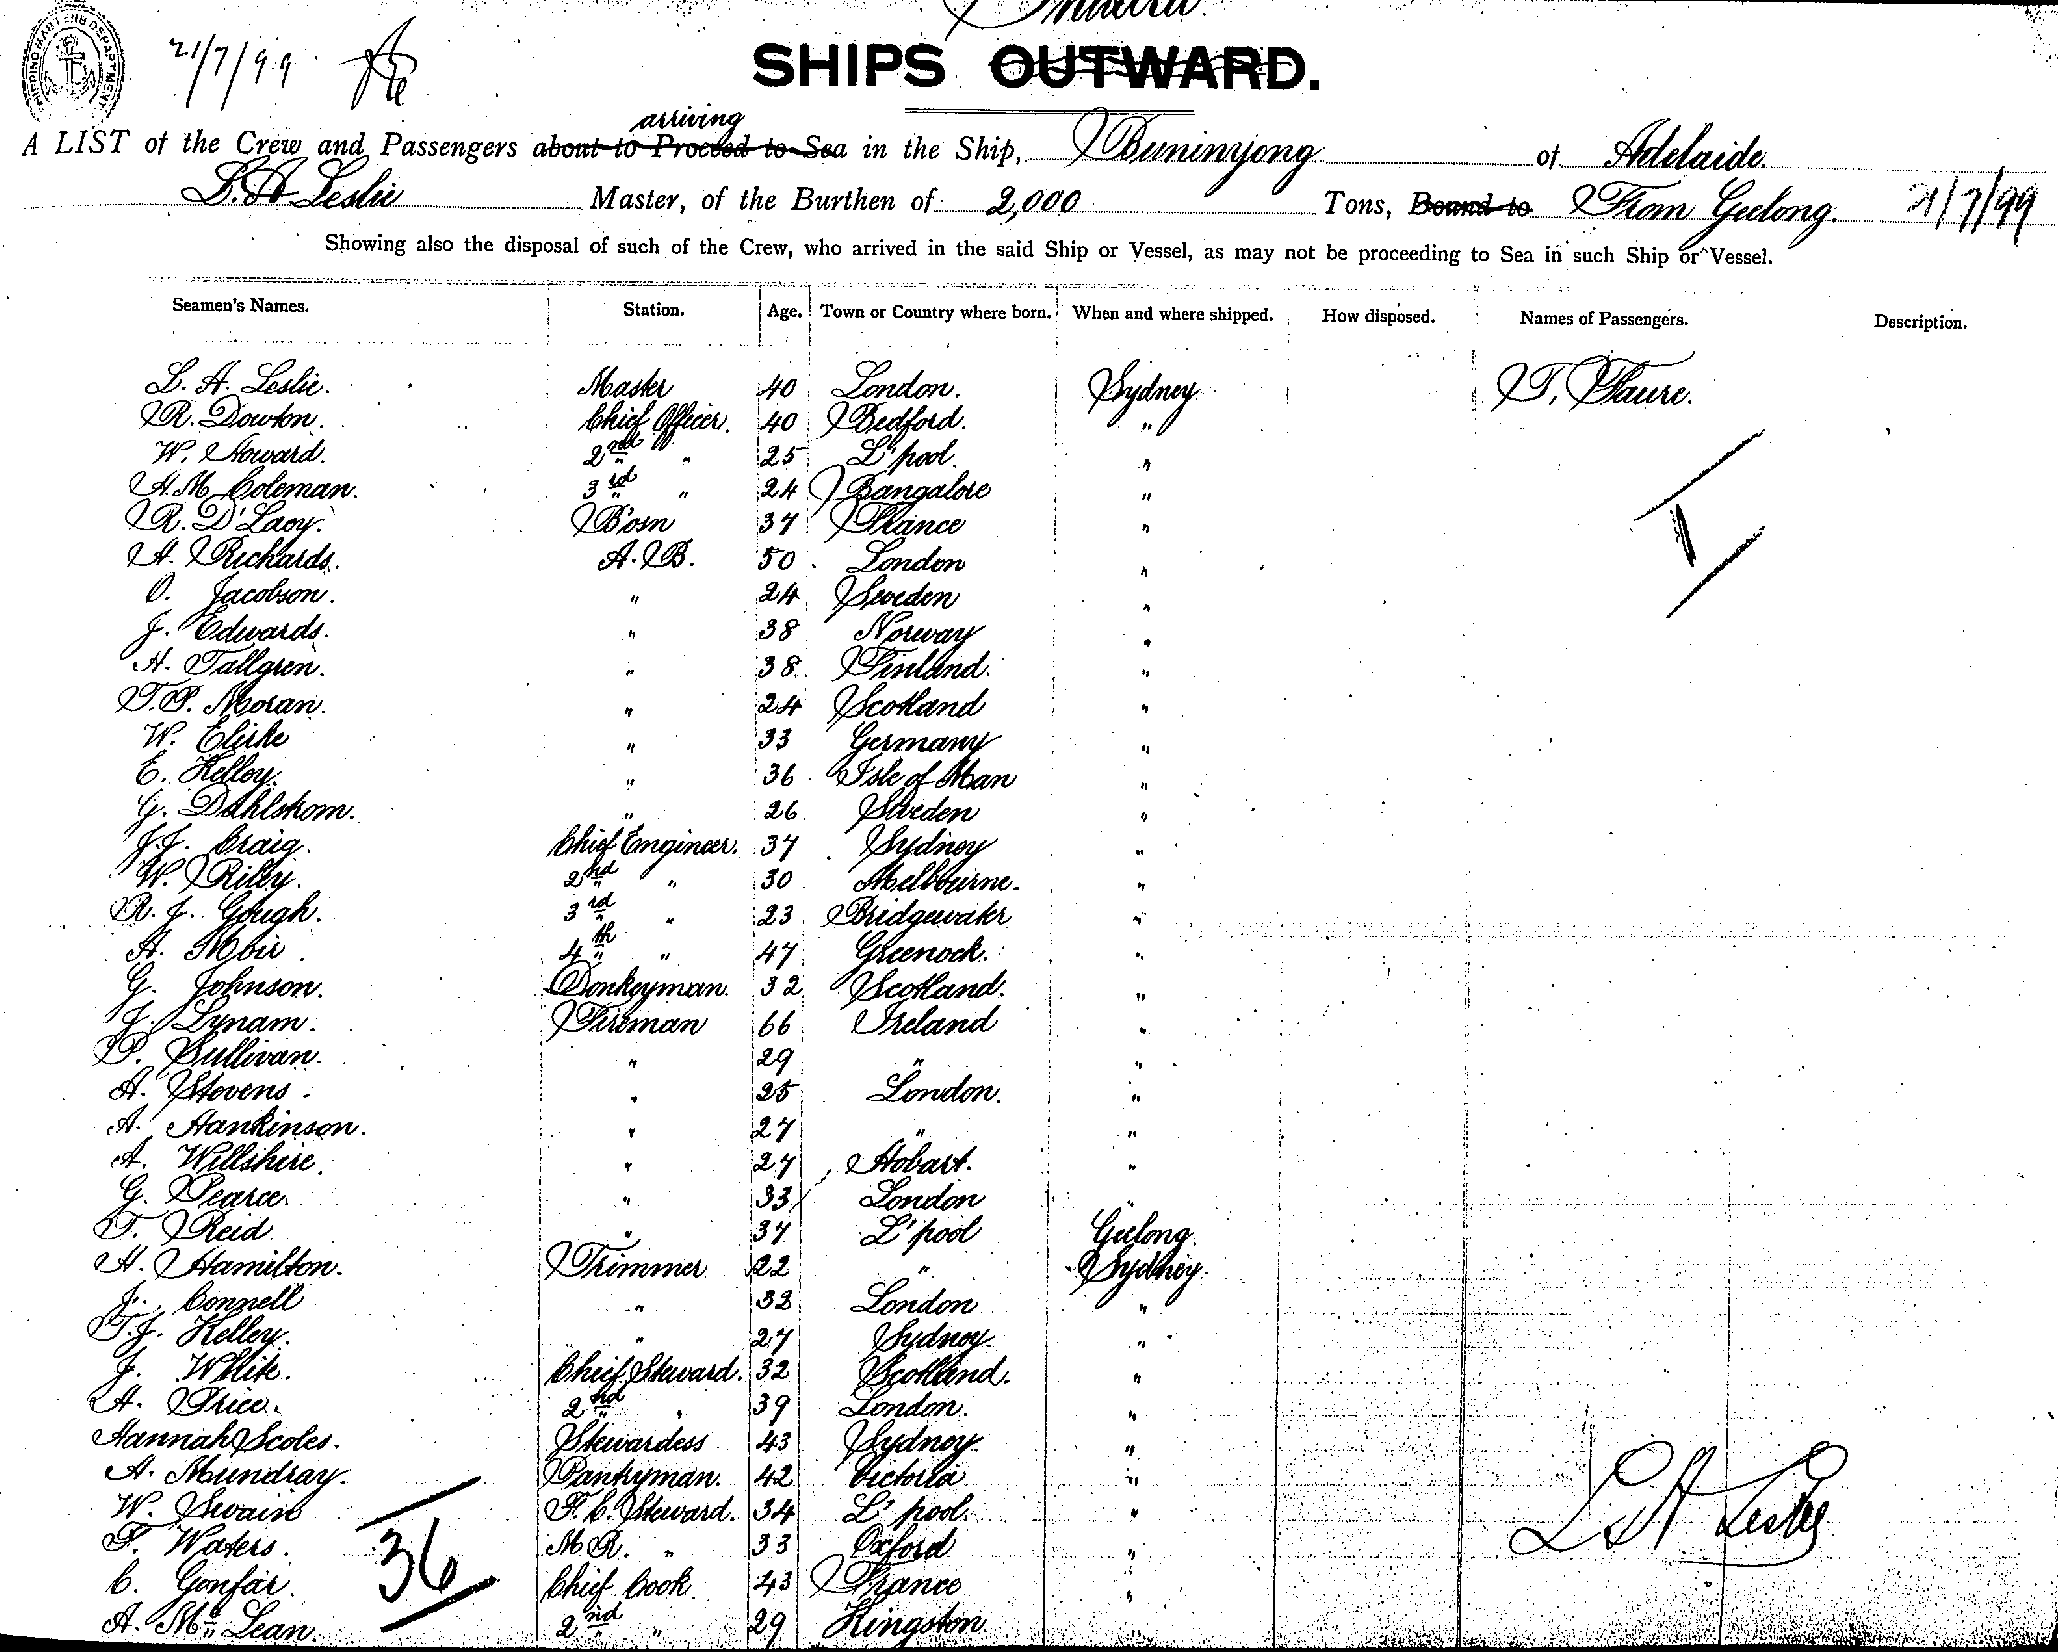 Inward.
SHIPPING MASTER'S DEPARTMENT
21/7/99
SHIPS OUTWARD.
arriving
A LIST of the Crew and Passengers about to Proceed to Sea in the Ship, Buninyong of Adelaide.
L. A Leslie Master, of the Burthen of 2,000 Tons, Bound to From Geelong. 21/7/99
Showing also the disposal of such of the Crew, who arrived in the said Ship or Vessel, as may not be proceeding to Sea in such Ship or Vessel.
Seamen's Names. Station. Age. Town or Country where born. When and where shipped. How disposed. Names of Passengers. Description.
L. A. Leslie. Master 40 London. Sydney T. Faure.
R. Dowton. Chief Officer. 40 Bedford. "
W. Howard. 2nd " 25 L'pool. "
A. M. Coleman. 3rd " 24 Bangalore "
R. D'Lacy. Bosn 37 France "
A. Richards. A.B. 50 London "
O. Jacobson. " 24 Sweden "
J. Edwards. " 38 Norway "
A. Tallgren. " 38 Finland. "
T.P. Moran. " 24 Scotland "
W. " 33 Germany "
E. Kelley. " 36 Isle of Man "
G. Dahlskom. " 26 Sweden "
J.J. Craig. Chief Engineer. 37 Sydney "
W. Riley. 2nd " 30 Melbourne. "
R. J. Gough. 3rd " 23 Bridgewater "
A. Moir 4th " 47 Greenock. "
G. Johnson. Donkeyman. 32 Scotland. "
J. Lynam. Fireman 66 Ireland "
P. Sullivan. " 29 " "
A. Stevens. " 25 London. "
A. Hankinson. " 27 " "
A. Willshire. " 27 Hobart. "
G. Pearce. " 33 London "
T. Reid " 37 L'pool Geelong.
H. Hamilton. Trimmer 22 " Sydney.
J. Connell " 33 London "
T.J. Kelley. " 27 Sydney "
J. White. Chief Steward. 32 Scotland. "
A. Price. 2nd " 39 London. "
Hannah Scoles. Stewardess 43 Sydney. "
A. Mundray. Pantryman. 42 Victoria "
W. Swain F.C. Steward. 34 L'pool. "
F. Waters. M.R. " 33 Oxford "
C. Gonfar. Chief Cook 43 France "
A. McLean. 2nd " 29 Kingston "
1
36
L A Leslie